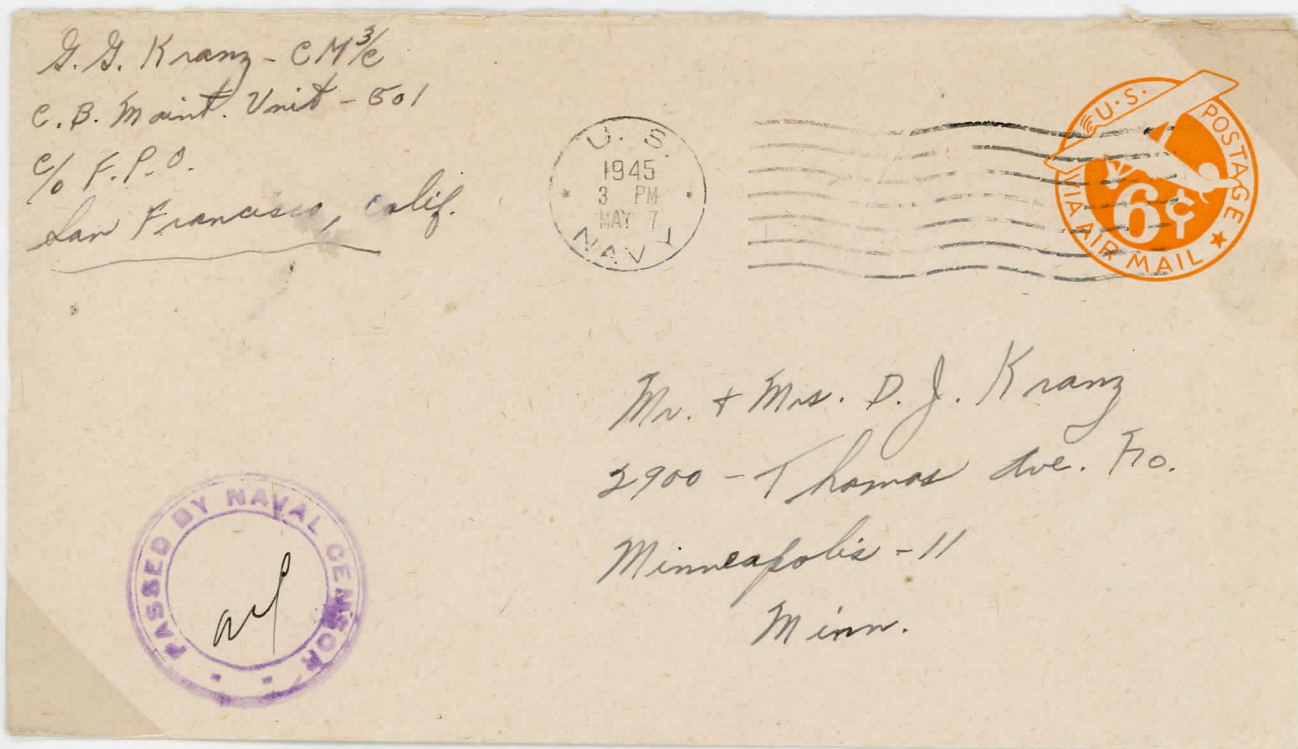 G. G. Kranz - CM 3/c
C. B. Maint. Unit - 501
c/o F.P.O.
San Francisco, Calif.
U. S.
1945
3 PM
MAY 7
NAVY
U.S. POSTAGE
6¢
VIA AIR MAIL
Mr. + Mrs. D. J. Kranz
2900 - Thomas Ave. No.
Minneapolis - 11
Minn.
PASSED BY NAVAL CENSOR